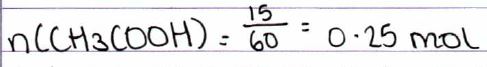 n(CH3COOH) = 15/60 = 0.25 mol